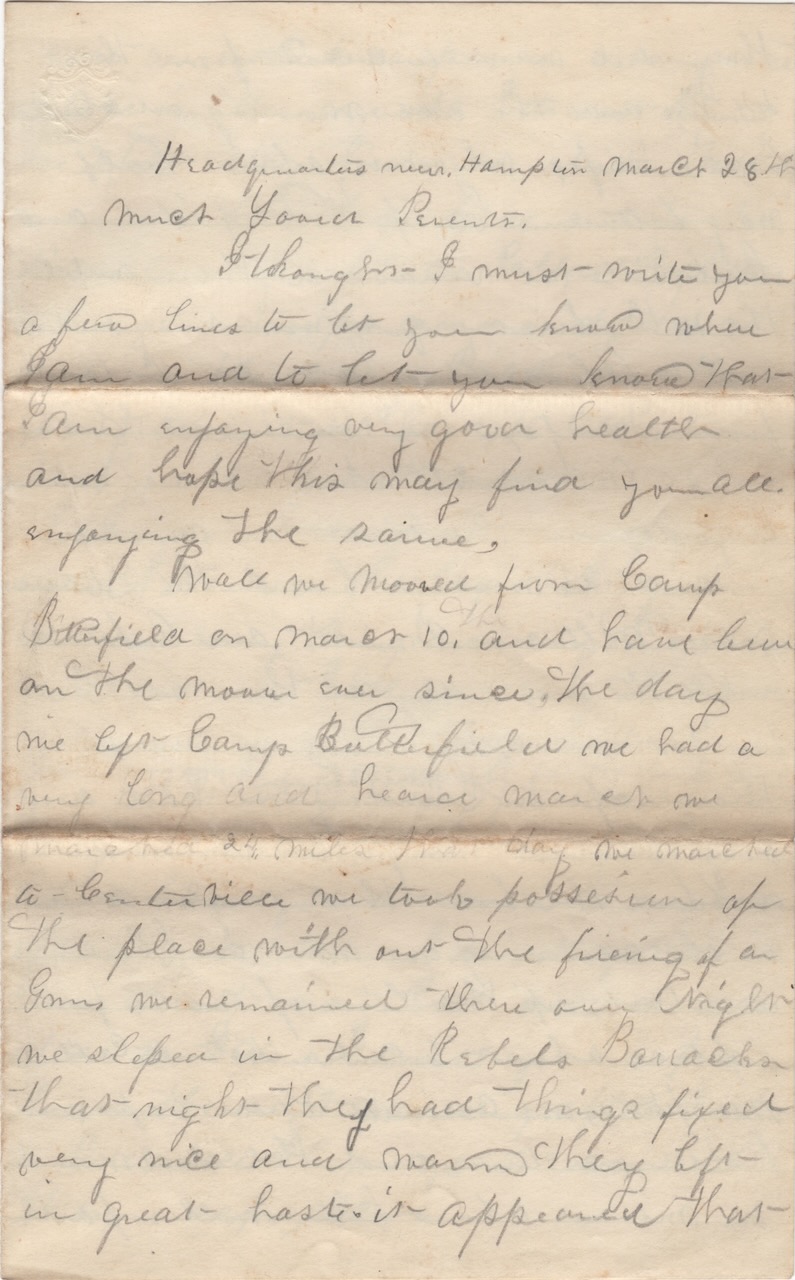 Headquarters near, Hampton March 28th
Much Loved Perents.
I thought I must write you
a few lines to let you know where
I am and to let you know that
I am enjoying very good health
and hope this may find you all.
enjoying the same.
Well we mooved from Camp
Butterfield on March 10. the and have been
on the moove ever since. The day
we left Camp Butterfield we had a
very long and heard march we
marched 24 miles that day we marched
to Centerville we took possesion of
the place with out the fireing of an
Guns we remained there over Night
we sleped in the Rebels Barracks
that night they had things fixed
very nice and warm they left
in great haste. it appeared that